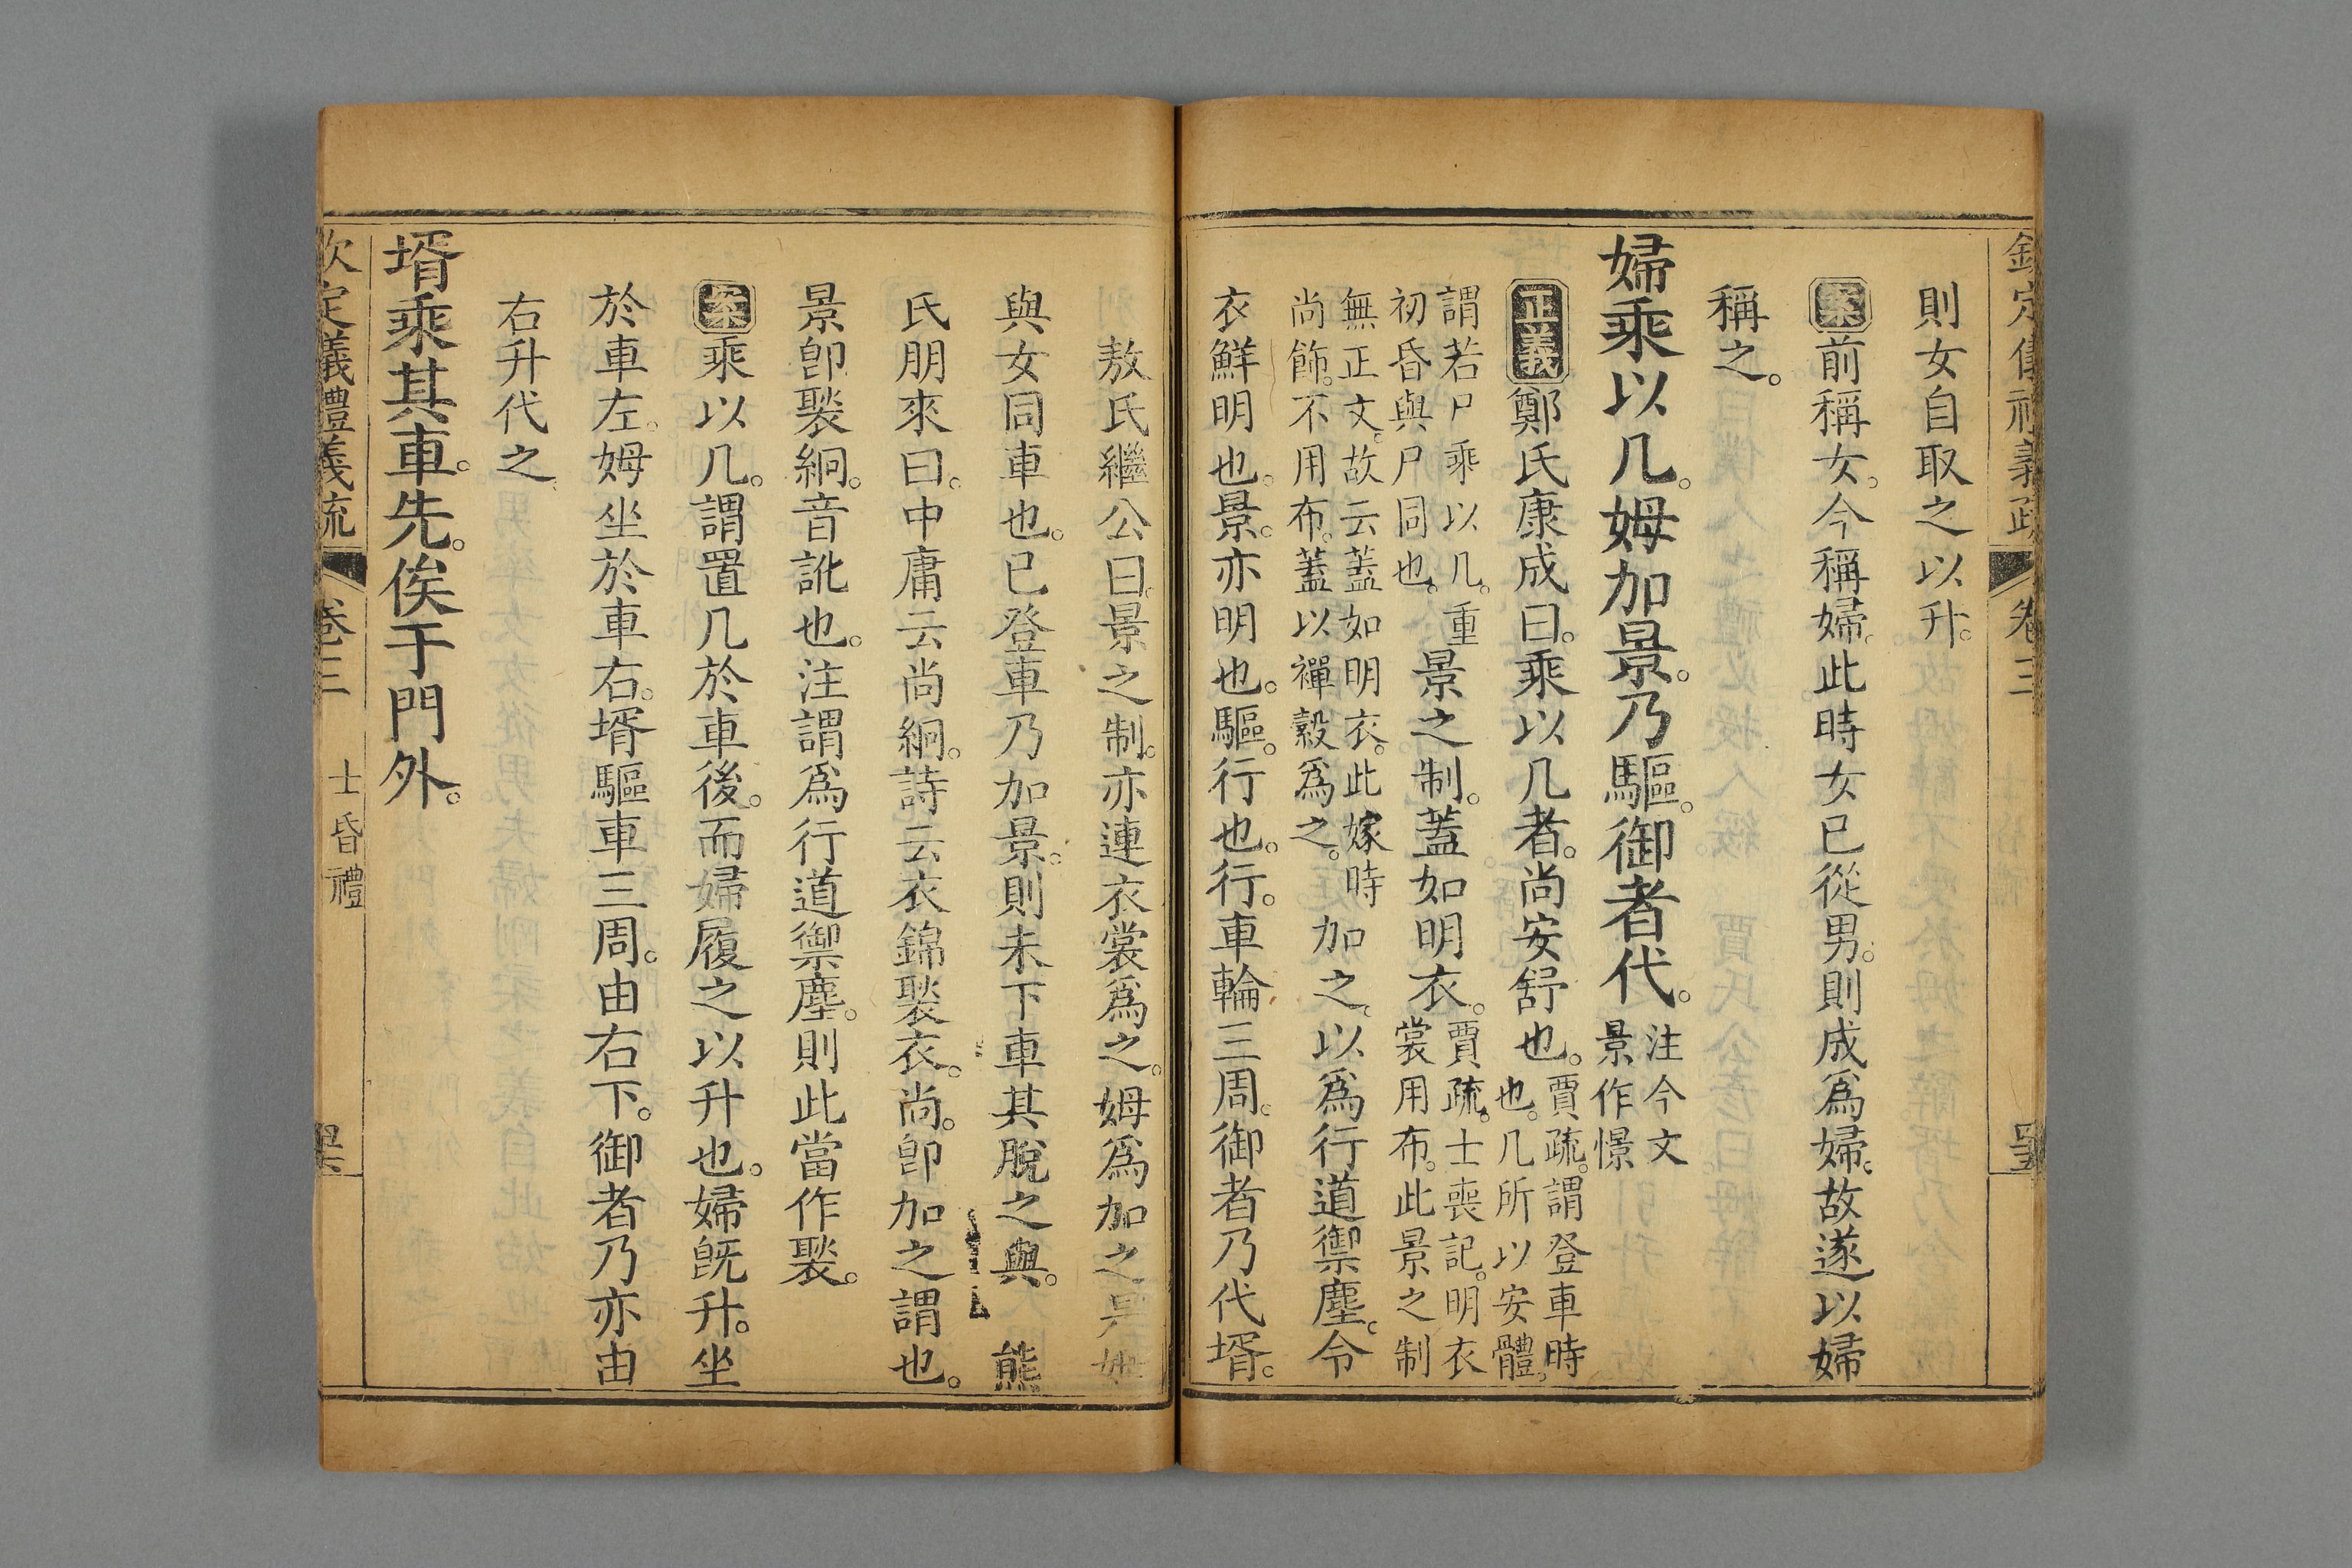 欽定儀禮義疏 卷三
則女自取之以升。
案前稱女。今稱婦。此時女已從男。則成爲婦。故遂以婦
稱之。
婦乘以几。姆加景。乃驅。御者代。
注今文
景作憬
正義鄭氏康成曰。乘以几者。尚安舒也。
賈疏。謂登車時
也。几所以安體。
謂若尸乘以几。重
初昏與尸同也。
景之制。蓋如明衣。
賈疏。士喪記。明衣
裳用布。此景之制
無正文。故云蓋如明衣。此嫁時
尚飾。不用布。蓋以襌縠爲之。
加之。以爲行道禦塵。令
衣鮮明也。景。亦明也。驅。行也。行。車輪三周。御者乃代壻。
敖氏繼公曰。景之制。亦連衣裳爲之。姆爲加之
與女同車也。已登車乃加景。則未下車其脫之與。 熊
氏朋來曰。中庸云尚絅。詩云衣錦褧衣。尚。卽加之謂也。
景卽褧絅。音訛也。注謂爲行道禦塵。則此當作褧。
案乘以几。謂置几於車後。而婦履之以升也。婦旣升。坐
於車左。姆坐於車右。壻驅車三周。由右下。御者乃亦由
右升代之。
壻乘其車。先。俟于門外。
欽定儀禮義疏 卷三 士昏禮